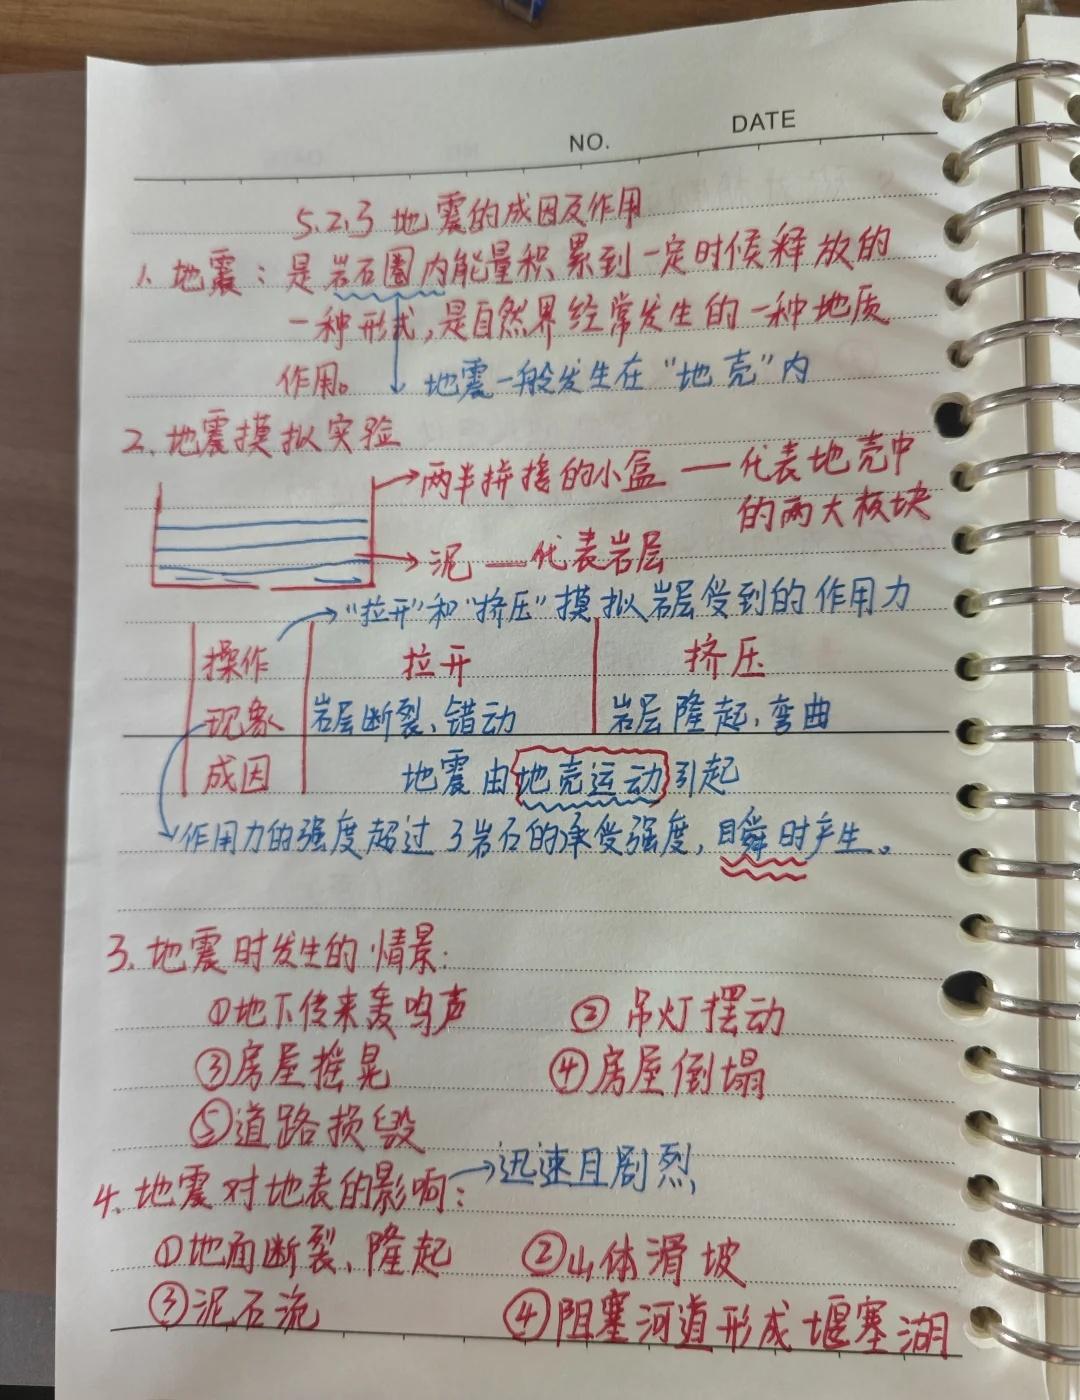 NO.
DATE
5.2.3 地震的成因及作用
1. 地震：是岩石圈内能量积累到一定时候释放的
一种形式，是自然界经常发生的一种地质
作用。 地震一般发生在“地壳”内
2. 地震摸拟实验
两半拼接的小盒 — 代表地壳中
的两大板块
泥 — 代表岩层
“拉开”和“挤压”摸拟岩层受到的作用力
操作 拉开 挤压
现象 岩层断裂、错动 岩层隆起、弯曲
成因 地震由地壳运动引起
作用力的强度超过了岩石的承受强度，瞬时产生。
3. 地震时发生的情景：
①地下传来轰鸣声 ②吊灯摆动
③房屋摇晃 ④房屋倒塌
⑤道路损毁
4. 地震对地表的影响： 迅速且剧烈
①地面断裂、隆起 ②山体滑坡
③泥石流 ④阻塞河道形成堰塞湖